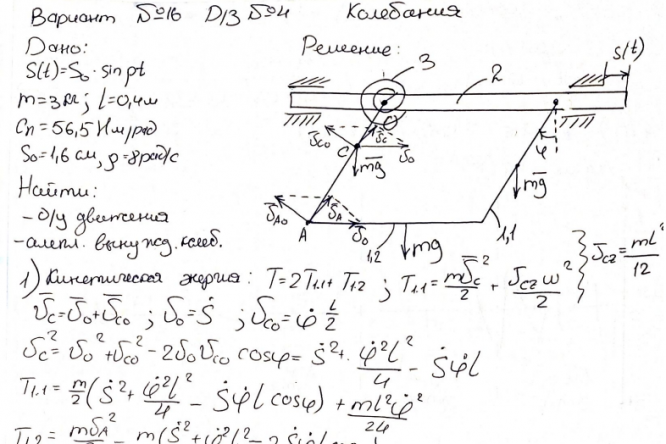 Вариант №16 D/3 №4 Колебания
Дано:
S(t)=S₀·sin pt
m=3кг; l=0,4м
Cп=56,5 Нм/рад
S₀=1,6 см, p=8рад/с
Найти:
- д/у движения
- ампл. вынужд. колеб.
Решение:
3
2
S(t)
O
φ
C
v̄co
v̄c
v̄o
mḡ
mḡ
v̄Ao
v̄A
v̄o
A
1,2
mḡ
1,1
1) Кинетическая энергия: T=2T1.1+T1.2 ; T1.1=mv̄c²/2 + Jczω²/2 } Jcz=ml²/12
v̄c=v̄o+v̄co ; vo=Ṡ ; vco=φ̇ l/2
vc²=vo²+vco²-2vovco cosφ= Ṡ²+ φ̇²l²/4 - Ṡφ̇l
T1.1= m/2(Ṡ²+ φ̇²l²/4 - Ṡφ̇l cosφ) + ml²φ̇²/24